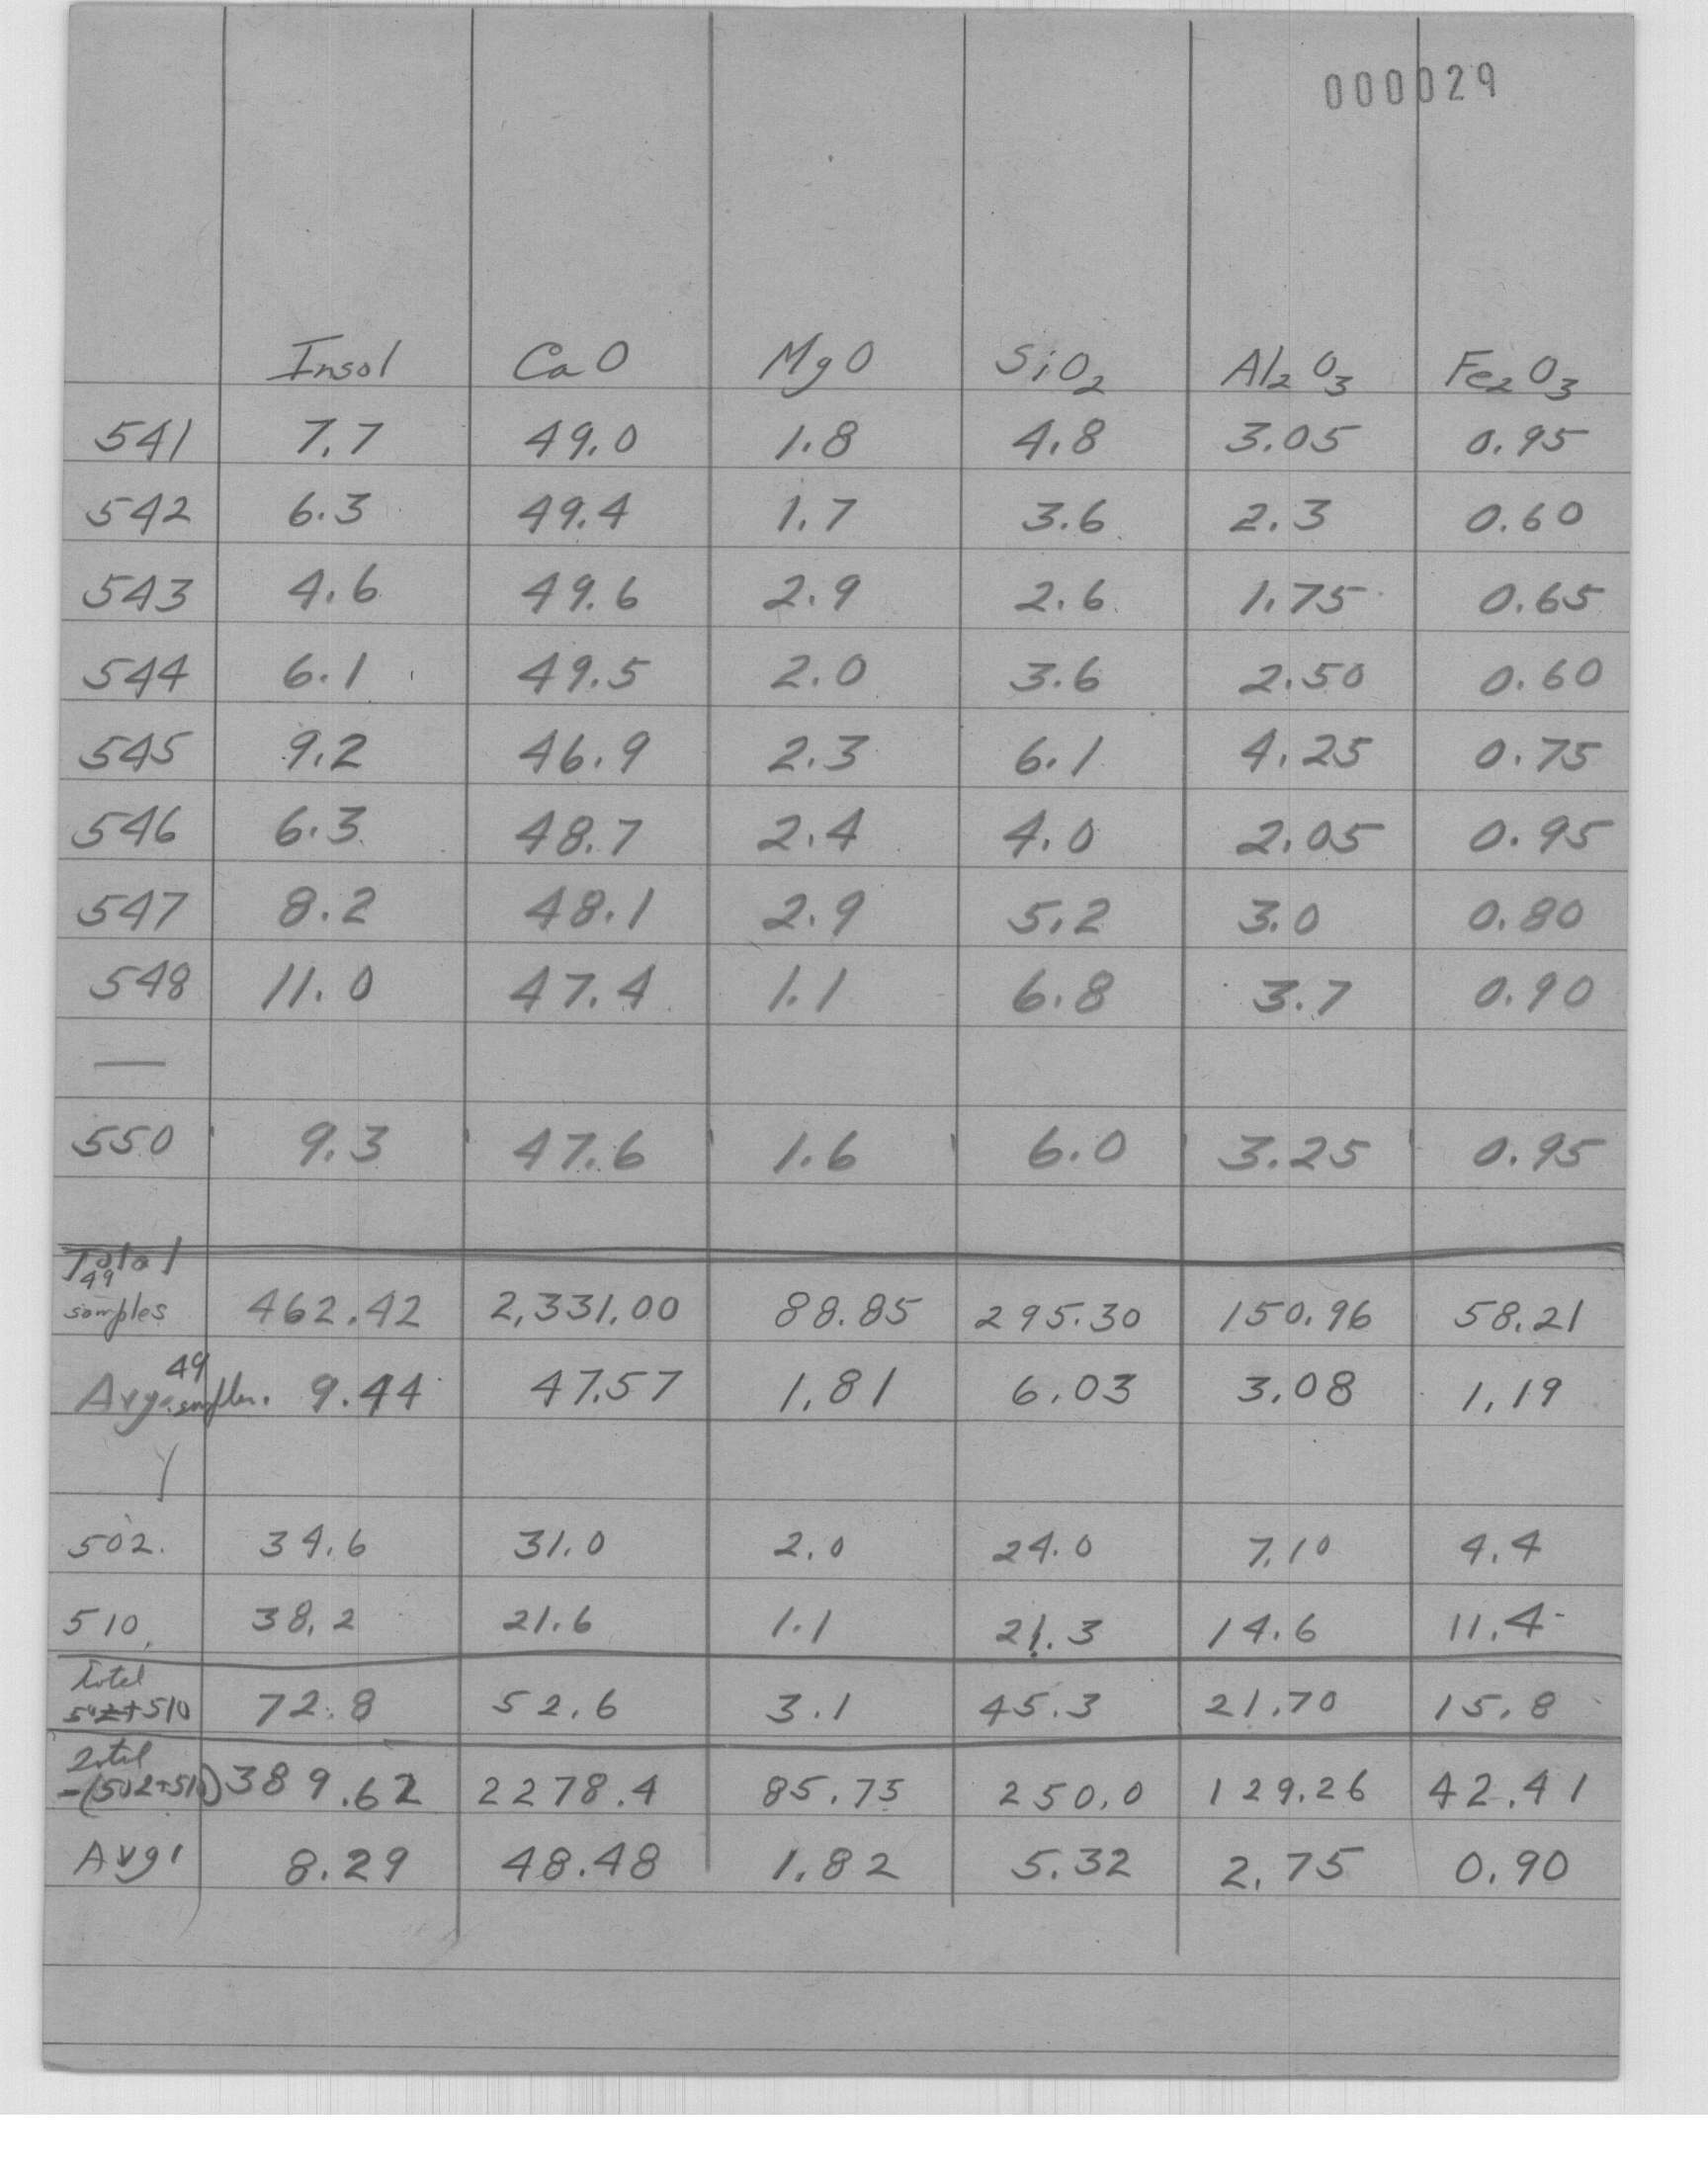 000029
Insol CaO MgO SiO2 Al2O3 Fe2O3
541 7.7 49.0 1.8 4.8 3.05 0.95
542 6.3 49.4 1.7 3.6 2.3 0.60
543 4.6 49.6 2.9 2.6 1.75 0.65
544 6.1 49.5 2.0 3.6 2.50 0.60
545 9.2 46.9 2.3 6.1 4.25 0.75
546 6.3 48.7 2.4 4.0 2.05 0.95
547 8.2 48.1 2.9 5.2 3.0 0.80
548 11.0 47.4 1.1 6.8 3.7 0.90
—
550 9.3 47.6 1.6 6.0 3.25 0.95
Total
49
samples 462.42 2,331.00 88.85 295.30 150.96 58.21
49
Avg. samples. 9.44 47.57 1.81 6.03 3.08 1.19
502. 34.6 31.0 2.0 24.0 7.10 4.4
510. 38.2 21.6 1.1 21.3 14.6 11.4
Total
502+510 72.8 52.6 3.1 45.3 21.70 15.8
Total
-(502+510) 389.62 2278.4 85.75 250.0 129.26 42.41
Avg. 8.29 48.48 1.82 5.32 2.75 0.90